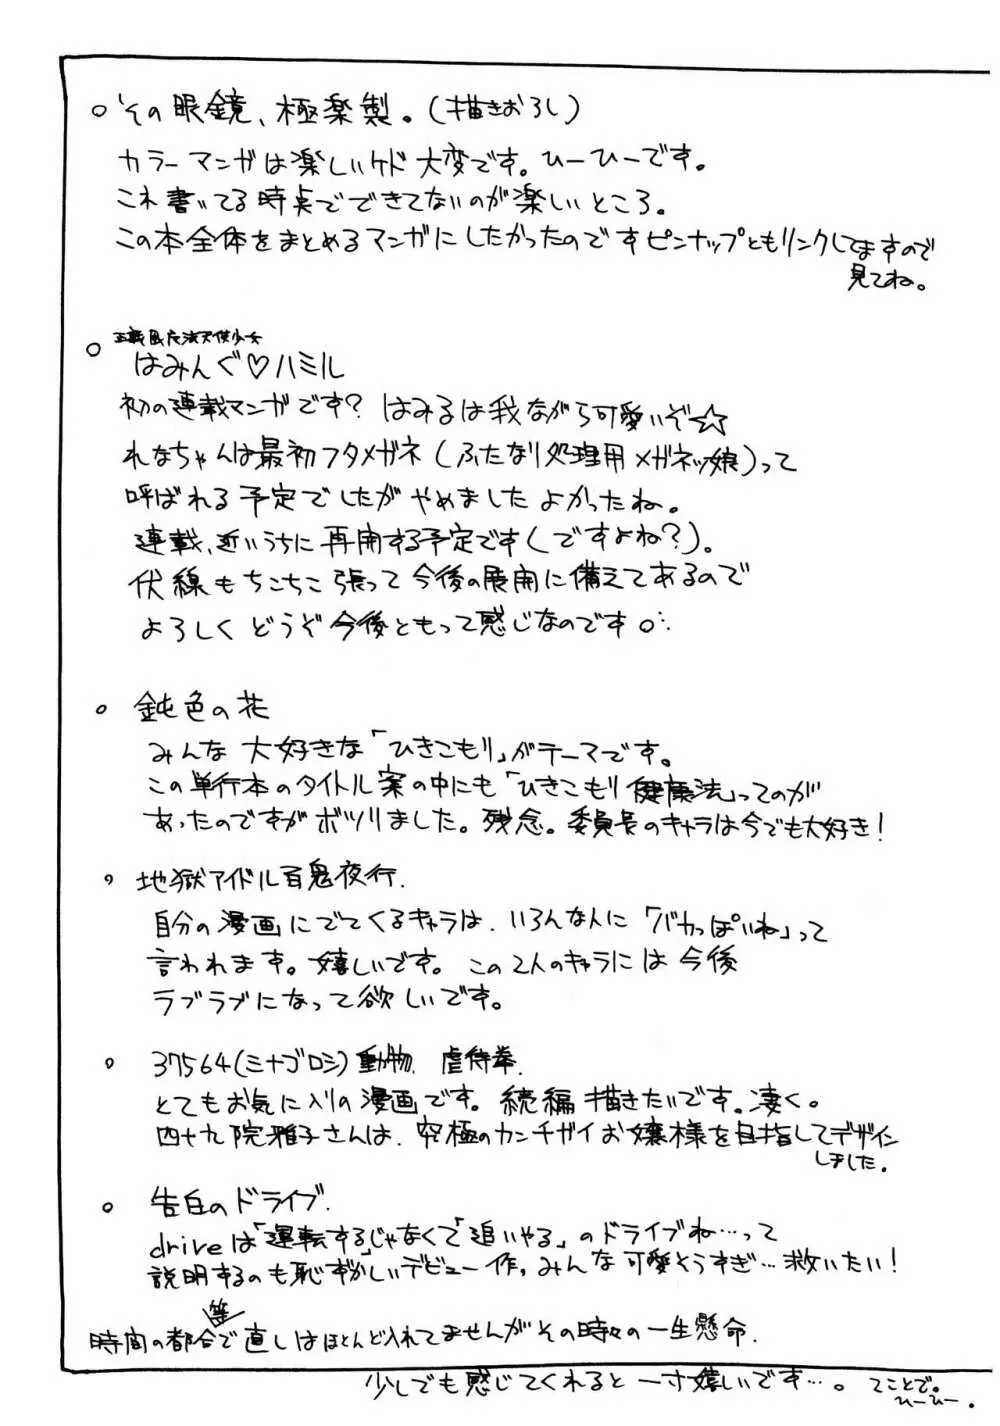 ○ その眼鏡、極楽製。(描きおろし)
カラーマンガは楽しいケド大変です。ひーひーです。
これ書いてる時点でできてないのが楽しいところ。
この本全体をまとめるマンガにしたかったのですピンナップともリンクしてますので
見てね。
法天使少女
○ はみんぐ♡ハミル
初の連載マンガです? はみるは我ながら可愛いぞ☆
れなちゃんは最初フタメガネ(ふたなり処理用メガネッ娘)って
呼ばれる予定でしたがやめましたよかったね。
連載、近いうちに再開する予定です(ですよね?)。
伏線もちこちこ張って今後の展開に備えてあるので
よろしくどうぞ今後ともって感じなのです
○ 鈍色の花
みんな大好きな「ひきこもり」がテーマです。
この単行本のタイトル案の中にも「ひきこもり健康法」ってのが
あったのですがボツりました。残念。委員長のキャラは今でも大好き!
○ 地獄アイドル百鬼夜行.
自分の漫画にでてくるキャラは、いろんな人に「バカっぽいね」って
言われます。嬉しいです。この2人のキャラには今後
ラブラブになって欲しいです。
○ 37564(ミナゴロシ)動物虐待拳.
とてもお気に入りの漫画です。続編描きたいです。凄く。
四十九院雅子さんは、究極のカンチガイお嬢様を目指してデザイン
しました。
○ 告白のドライブ.
driveは「運転する」じゃなくて「追いやる」のドライブね…って
説明するのも恥ずかしいデビュー作。みんな可愛そうすぎ…救いたい!
等
時間の都合で直しはほとんど入れてませんがその時々の一生懸命.
少しでも感じてくれると一寸嬉しいです…。てことで。
ひーひー。